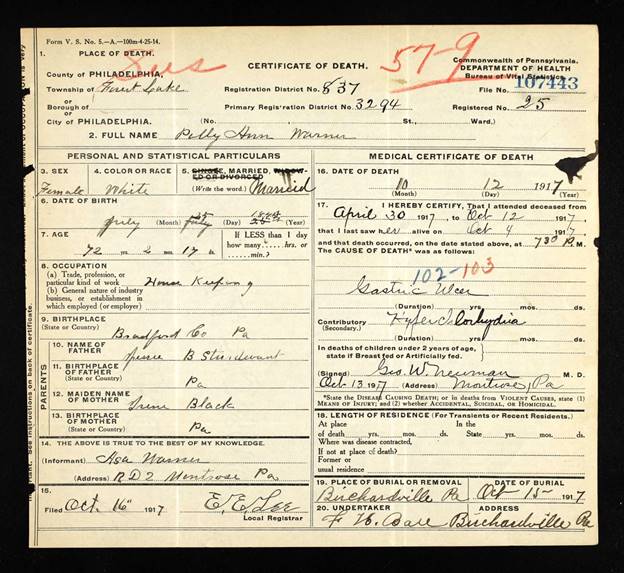 Form V. S. No. 5.—A.—100m-4-25-14.
1. PLACE OF DEATH.
County of PHILADELPHIA,
Township of Forest Lake
or
Borough of
or
City of PHILADELPHIA.
CERTIFICATE OF DEATH.
Registration District No. 837
Primary Registration District No. 3294
(No. St., Ward.)
57-9
Commonwealth of Pennsylvania.
DEPARTMENT OF HEALTH
Bureau of Vital Statistics
File No. 107443
Registered No. 25
2. FULL NAME Polly Ann Warner
PERSONAL AND STATISTICAL PARTICULARS
3. SEX
Female
4. COLOR OR RACE
White
5. SINGLE, MARRIED, WIDOWED OR DIVORCED
(Write the word.) Married
6. DATE OF BIRTH
July (Month) (Day) (Year)
7. AGE
72 yrs. 2 mos. 17 ds.
If LESS than 1 day
how many hrs. or
min.?
8. OCCUPATION
(a) Trade, profession, or
particular kind of work House Keeping
(b) General nature of industry
business, or establishment in
which employed (or employer)
9. BIRTHPLACE
(State or Country)
Bradford Co Pa
PARENTS
10. NAME OF
FATHER
B Sturdevant
11. BIRTHPLACE
OF FATHER
(State or Country)
Pa
12. MAIDEN NAME
OF MOTHER
Irene Black
13. BIRTHPLACE
OF MOTHER
(State or Country)
Pa
14. THE ABOVE IS TRUE TO THE BEST OF MY KNOWLEDGE.
(Informant) Asa Warner
(Address) R D 2 Montrose Pa
15.
Filed Oct 16 1917 E. E. Lee
Local Registrar
MEDICAL CERTIFICATE OF DEATH
16. DATE OF DEATH
10 12 1917
17. I HEREBY CERTIFY, That I attended deceased from
April 30 1917, to Oct 12 1917
that I last saw her alive on Oct 4 1917
and that death occurred, on the date stated above, at 730 P.M.
The CAUSE OF DEATH* was as follows:
102-103
Gastric Ulcer
(Duration) yrs. mos. ds.
Contributory
(Secondary.)
Hyperchlorhydria
(Duration) yrs. mos. ds.
In deaths of children under 2 years of age,
state if Breastfed or Artificially fed.
(Signed) Geo. W Newman M. D.
Oct 13 1917 (Address) Montrose, Pa
*State the DISEASE CAUSING DEATH; or in deaths from VIOLENT CAUSES, state (1)
MEANS OF INJURY; and (2) whether ACCIDENTAL, SUICIDAL, OR HOMICIDAL.
18. LENGTH OF RESIDENCE (For Transients or Recent Residents.)
At place
of death yrs. mos. ds.
In the
State yrs. mos. ds.
Where was disease contracted,
if not at place of death?
Former or
usual residence
19. PLACE OF BURIAL OR REMOVAL
Birchardville Pa
DATE OF BURIAL
Oct 15 1917
20. UNDERTAKER
ADDRESS
Birchardville Pa
See instructions on back of certificate.